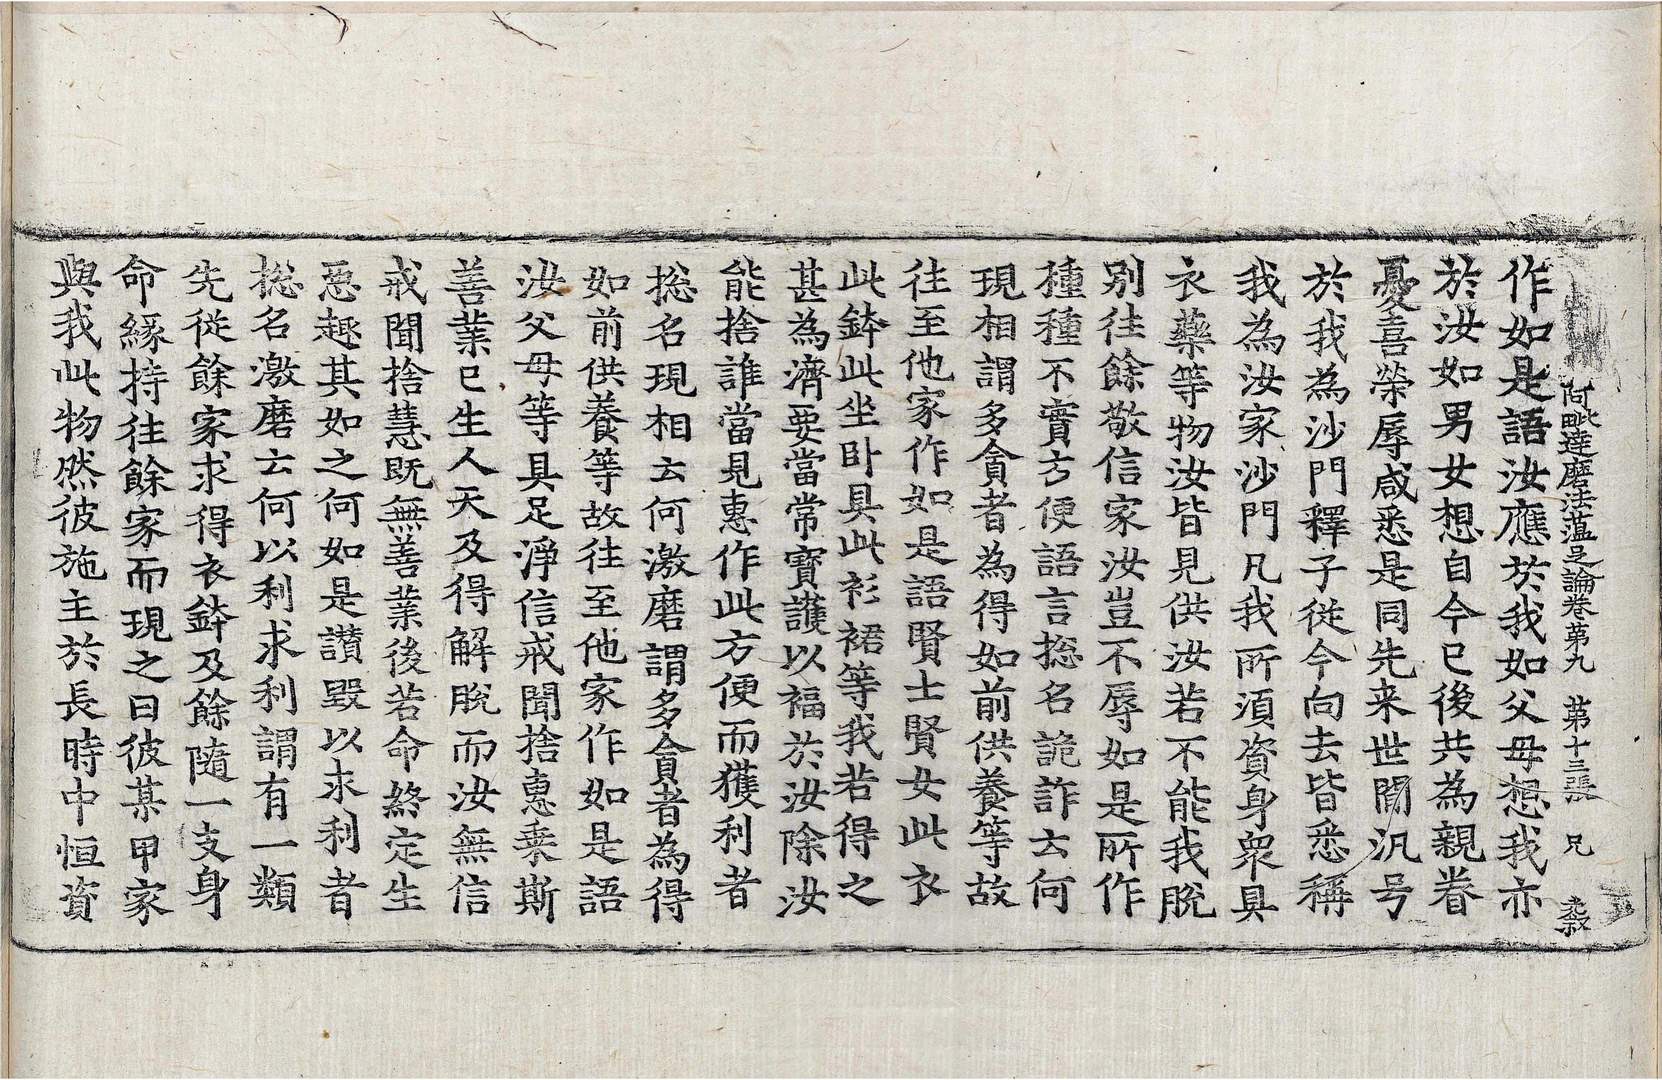 阿毗達磨法蕰足論卷第九 第十三張 兄
作如是語汝應於我如父母想我亦
於汝如男女想自今已後共為親眷
憂喜榮辱咸悉是同先来世間汎号
於我為沙門釋子從今向去皆悉稱
我為汝家沙門凡我所須資身衆具
衣藥等物汝皆見供汝若不能我脫
別往餘敬信家汝豈不辱如是所作
種種不實方便語言捴名詭詐云何
現相謂多貪者為得如前供養等故
往至他家作如是語賢士賢女此衣
此鉢此坐卧具此衫裙等我若得之
甚為濟要當常寶護以福於汝除汝
能捨誰當見惠作此方便而獲利者
捴名現相云何激磨謂多貪者為得
如前供養等故往至他家作如是語
汝父母等具足淨信戒聞捨惠乗斯
善業已生人天及得解脫而汝無信
戒聞捨慧既無善業後若命終定生
惡趣其如之何如是讃毀以求利者
捴名激磨云何以利求利謂有一類
先從餘家求得衣鉢及餘隨一支身
命緣持往餘家而現之曰彼某甲家
與我此物然彼施主於長時中恒資